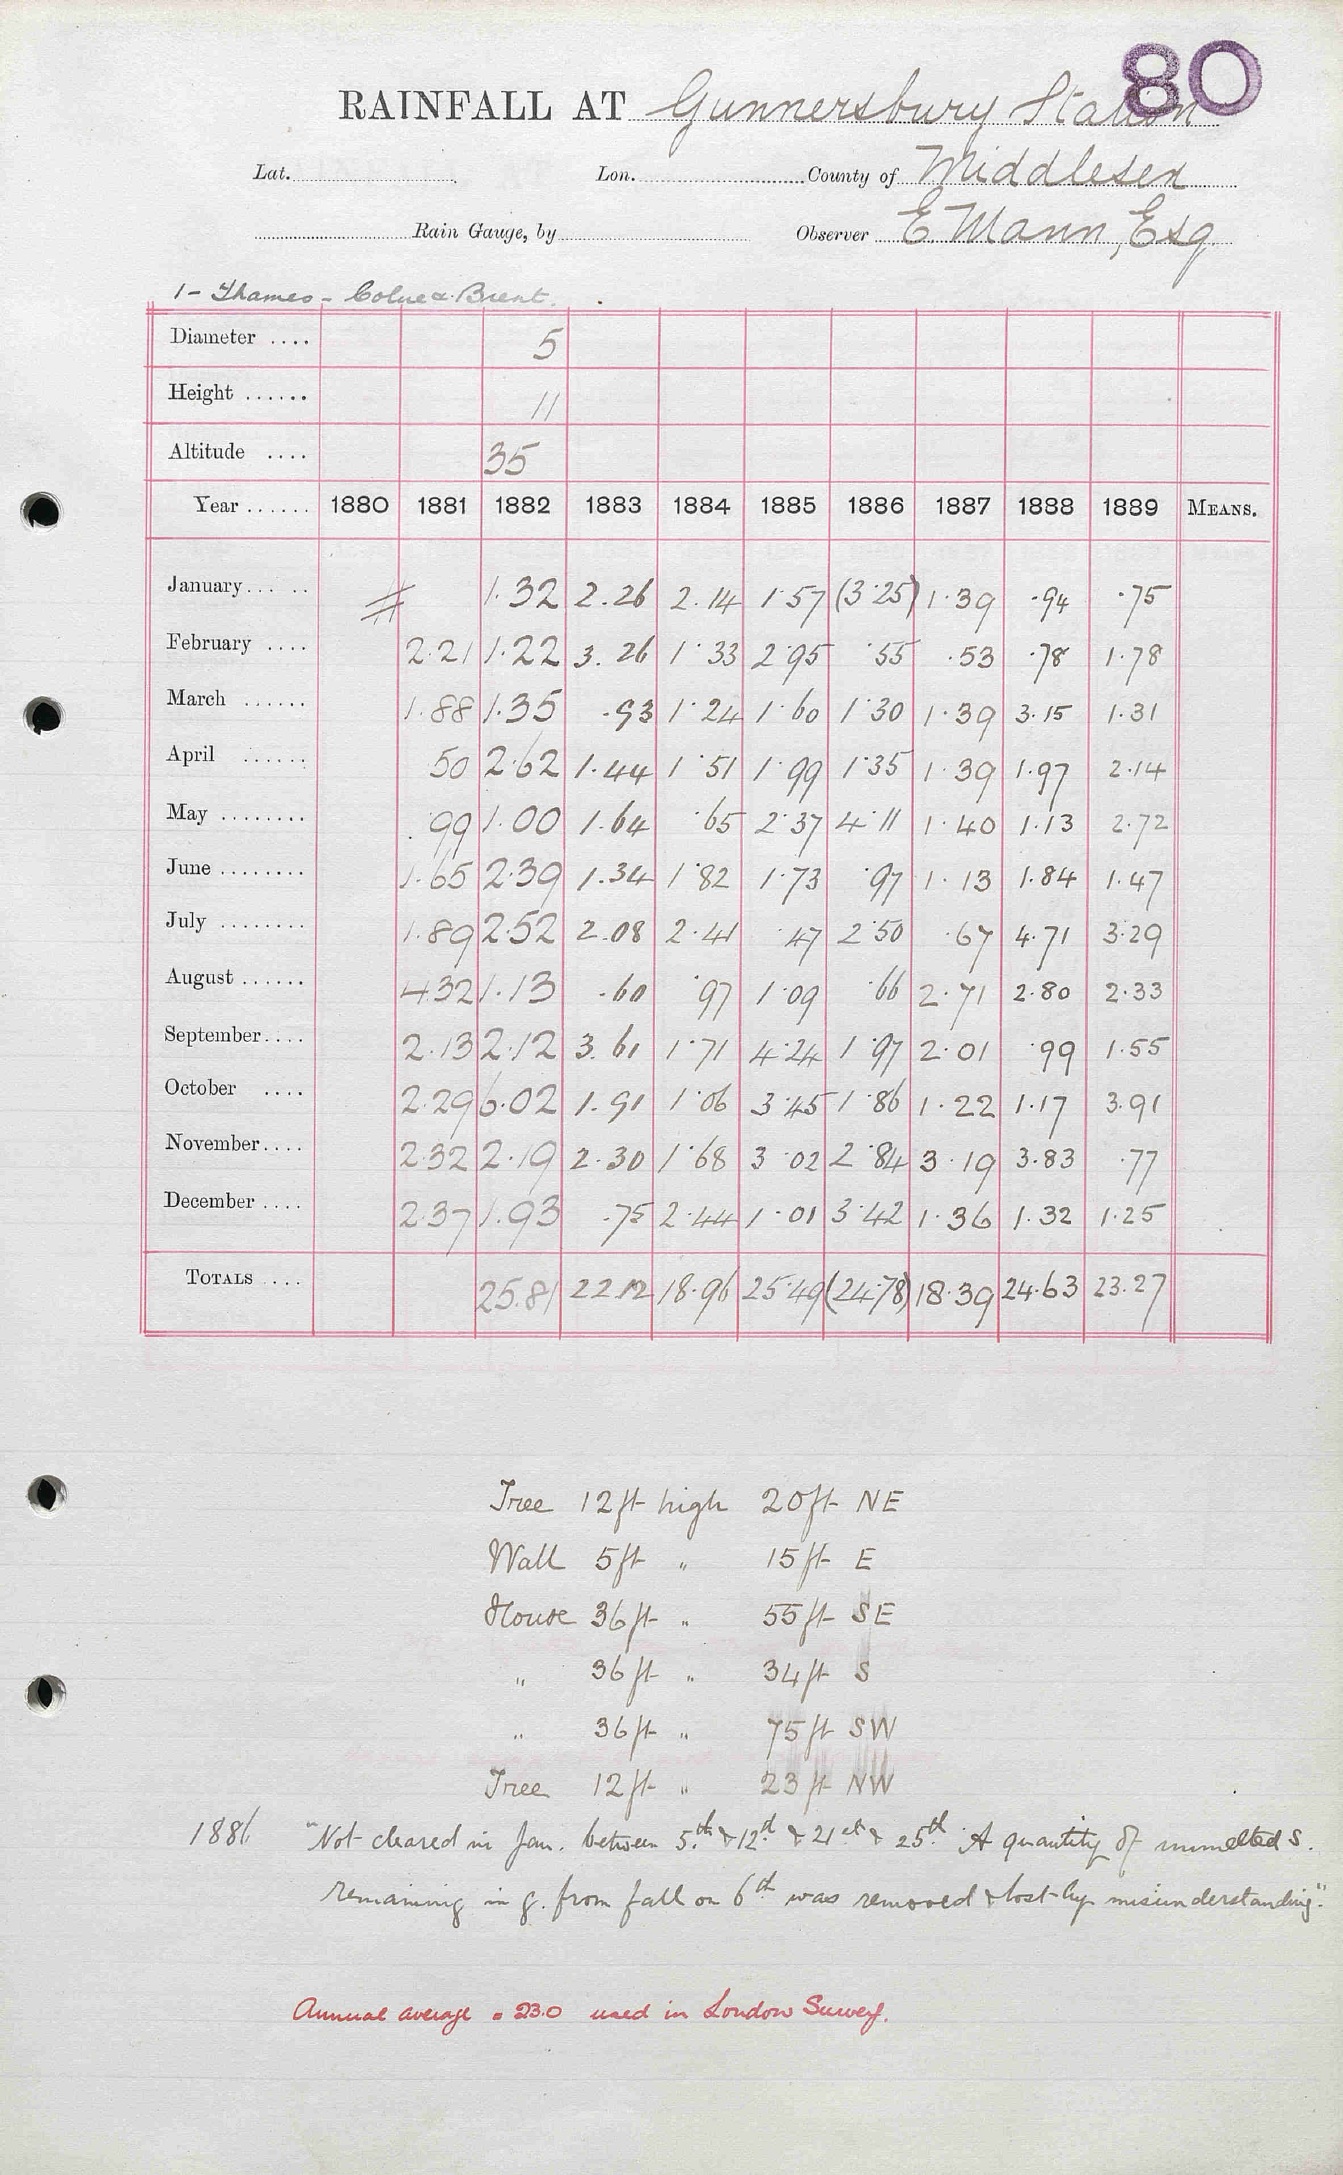 80
RAINFALL AT Gunnersbury Station
Lat. Lon. County of Middlesex
Rain Gauge, by Observer E Mann, Esq.
1 - Thames - Colne & Brent.
Diameter .... 5
Height ...... 11
Altitude .... 35
Year ...... 1880 1881 1882 1883 1884 1885 1886 1887 1888 1889 MEANS.
January... .. # 1.32 2.26 2.14 1.57 (3.25) 1.39 .94 .75
February .... 2.21 1.22 3.26 1.33 2.95 .55 .53 .78 1.78
March ...... 1.88 1.35 .93 1.24 1.60 1.30 1.39 3.15 1.31
April ...... 50 2.62 1.44 1.51 1.99 1.35 1.39 1.97 2.14
May ........ .99 1.00 1.64 .65 2.37 4.11 1.40 1.13 2.72
June ........ 1.65 2.39 1.34 1.82 1.73 .97 1.13 1.84 1.47
July ........ 1.89 2.52 2.08 2.41 .47 2.50 .67 4.71 3.29
August ...... 4.32 1.13 .60 .97 1.09 .66 2.71 2.80 2.33
September.... 2.13 2.12 3.61 1.71 4.24 1.97 2.01 .99 1.55
October .... 2.29 6.02 1.91 1.06 3.45 1.86 1.22 1.17 3.91
November.... 2.32 2.19 2.30 1.68 3.02 2.84 3.19 3.83 .77
December .... 2.37 1.93 .75 2.44 1.01 3.42 1.36 1.32 1.25
TOTALS .... 25.81 22.12 18.96 25.49 (24.78) 18.39 24.63 23.27
Tree 12 ft high 20 ft NE
Wall 5 ft " 15 ft E
House 36 ft " 55 ft SE
" 36 ft " 34 ft S
" 36 ft " 75 ft SW
Tree 12 ft " 23 ft NW
1886 "Not cleared in Jan. between 5th & 12th & 21st & 25th. A quantity of unmelted S.
remaining in g. from fall on 6th was removed & lost by misunderstanding."
Annual average = 23.0 used in London Survey.